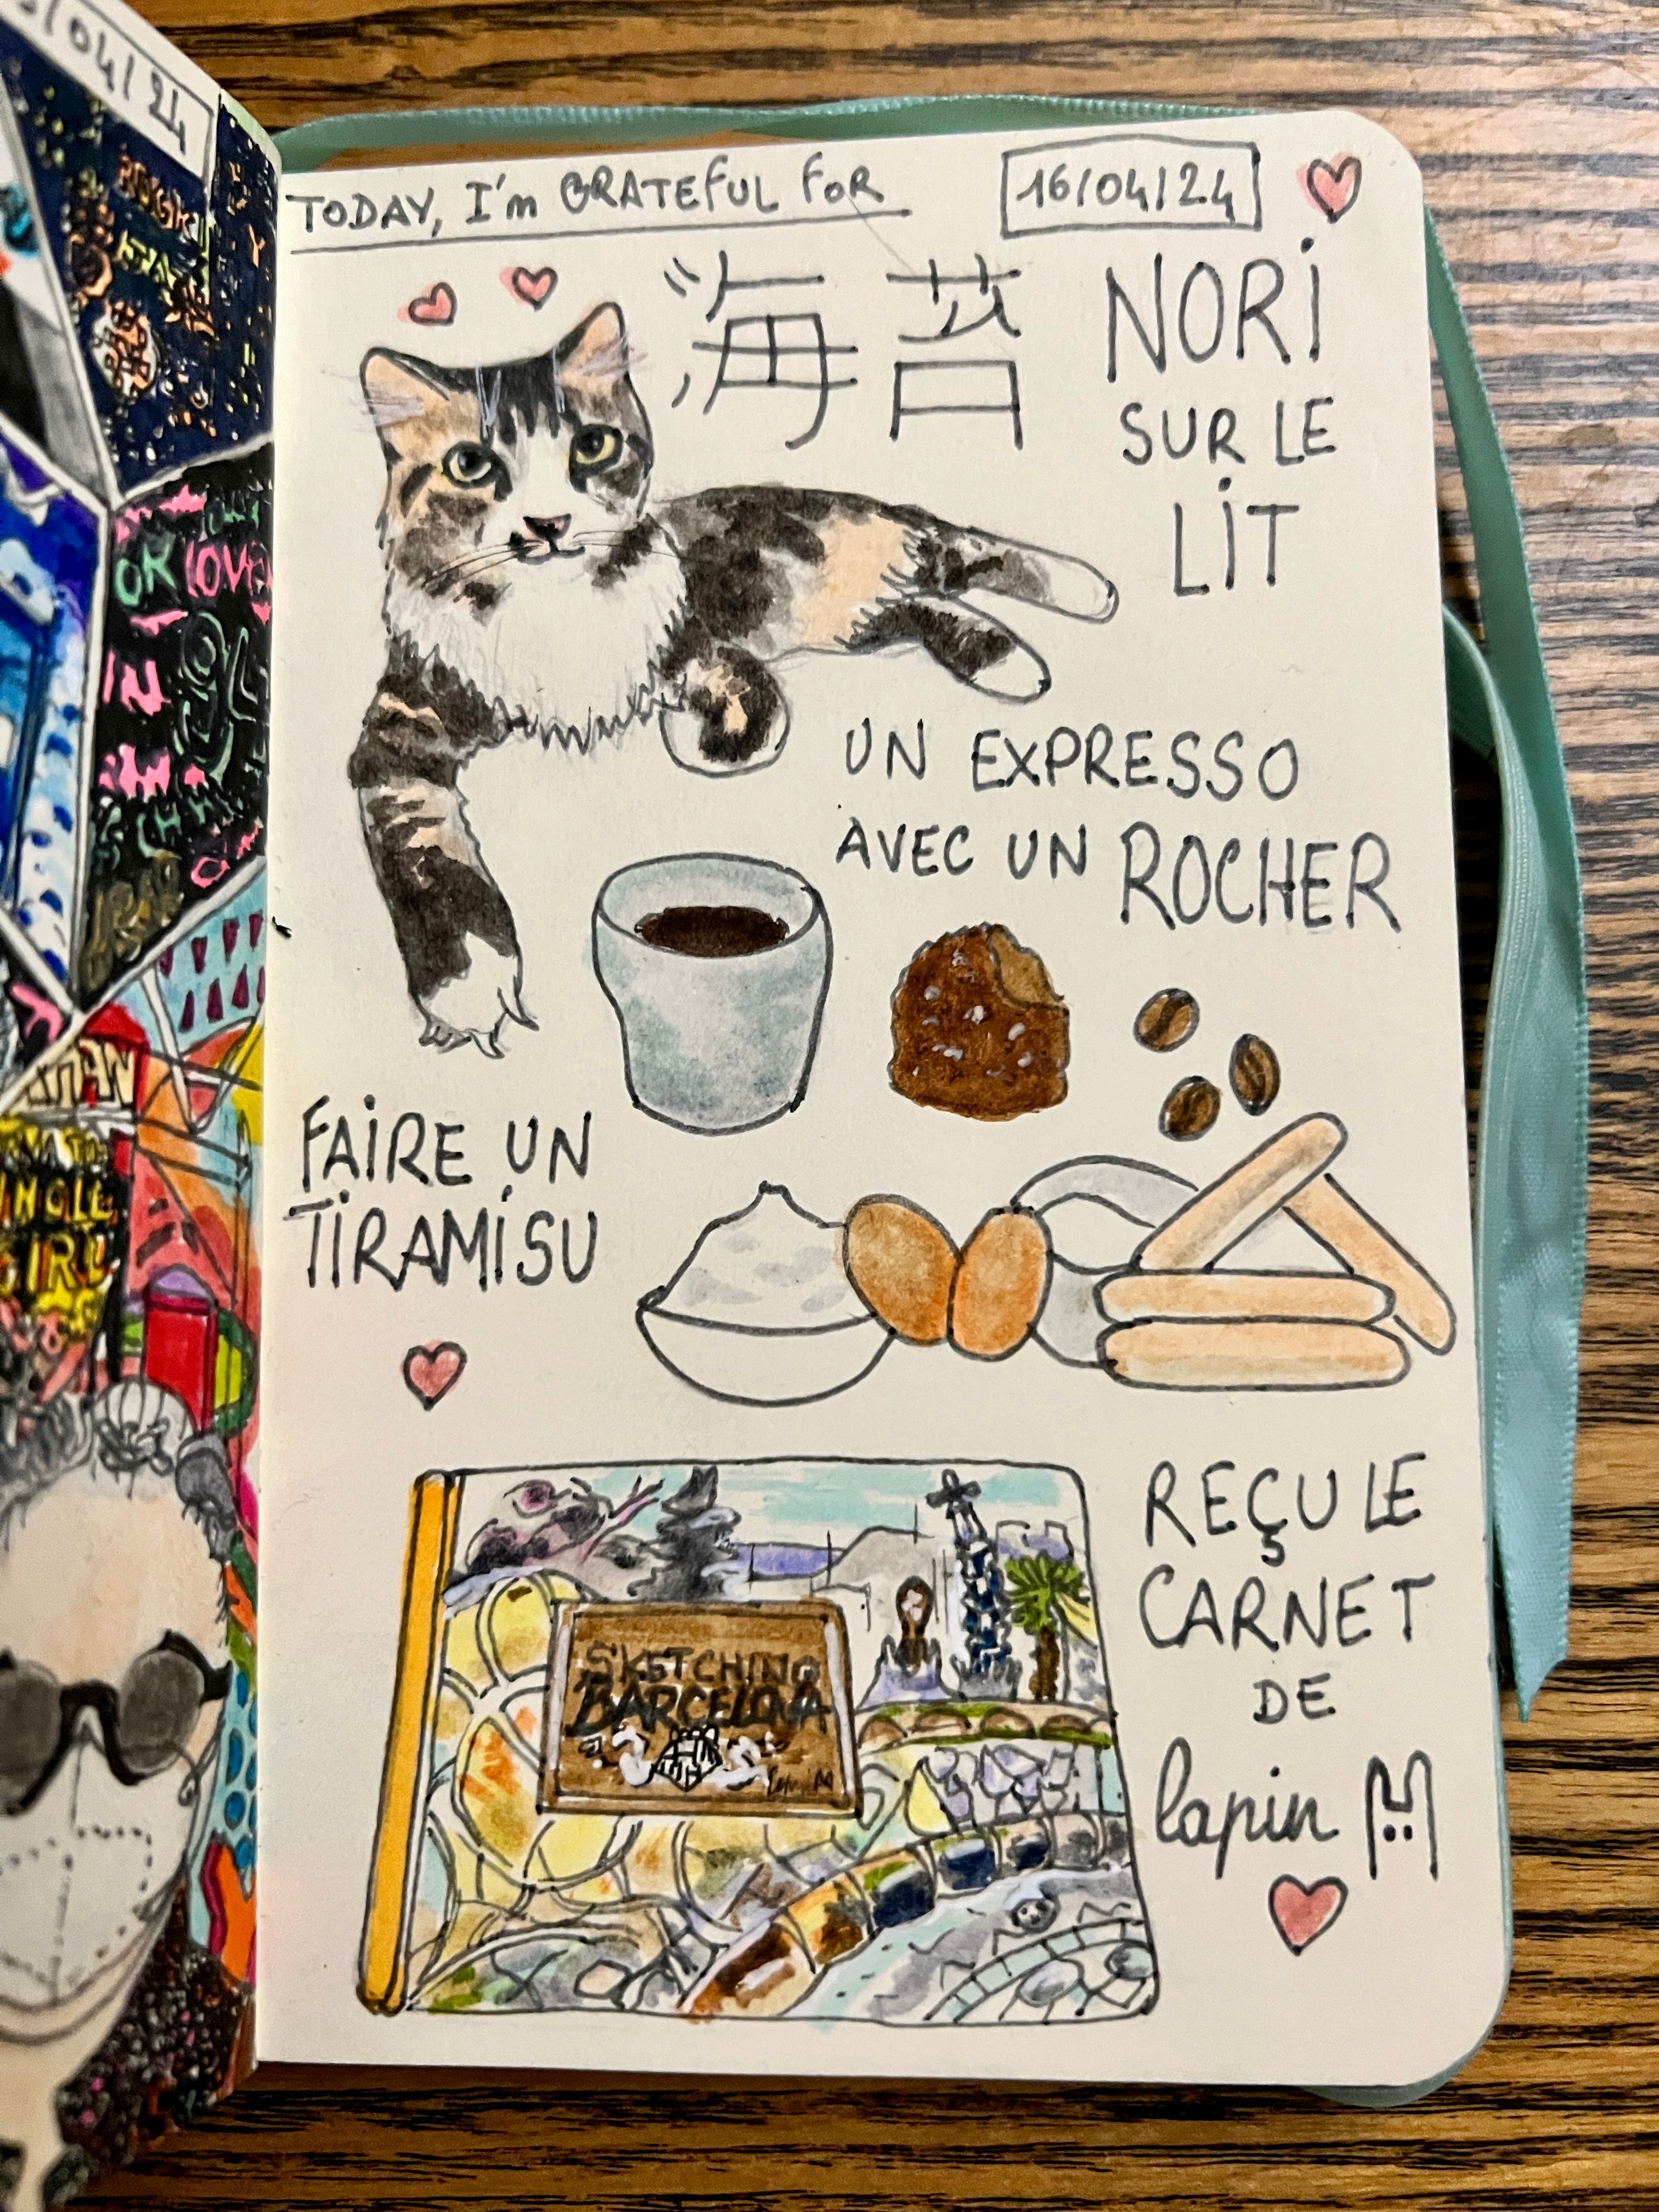 /04/24
OK LOVE
IN
INGLE
TODAY, I'm GRATEFUL FOR
16/04/24
海苔
NORI
SUR LE
LIT
UN EXPRESSO
AVEC UN ROCHER
FAIRE UN
TIRAMISU
SKETCHING
BARCELONA
REÇU LE
CARNET
DE
lapin